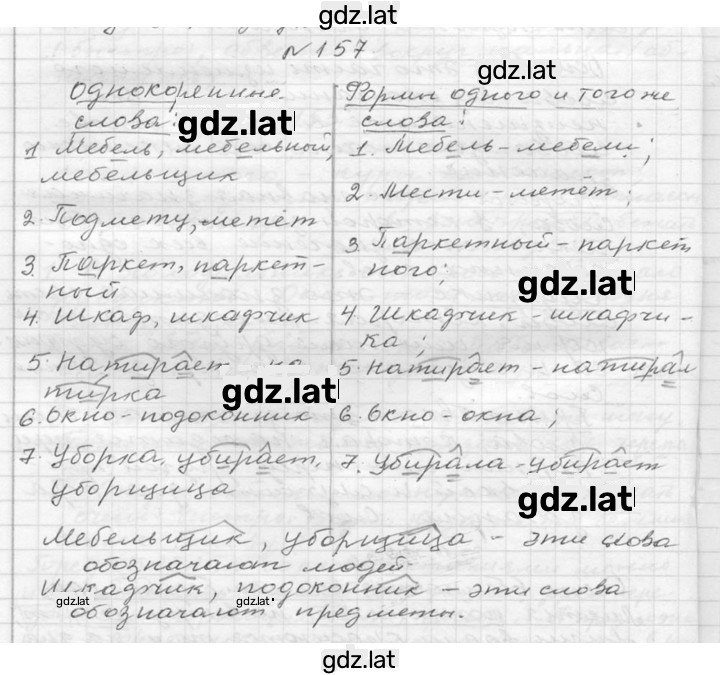 gdz.lat
№157
gdz.lat
Однокоренные
слова:
gdz.lat
1 Мебель, мебельный,
мебельщик
2. Подмету, метёт
3. Паркет, паркет-
ный
4. Шкаф, шкафчик
5. Натирает
тирка
gdz.lat
6. Окно - подоконник
7. Уборка, убирает,
уборщица
Формы одного и того же
слова:
1. Мебель - мебели;
2. Мести - метёт;
3. Паркетный - паркет
ного;
gdz.lat
4. Шкафчик - шкафчи-
ка;
5. Натирает - натирал
6. Окно - окна;
7. Убирала - убирает
gdz.lat
Мебельщик, уборщица - эти слова
обозначают людей.
Шкафчик, подоконник - эти слова
gdz.lat gdz.lat
обозначают предметы.
gdz.lat